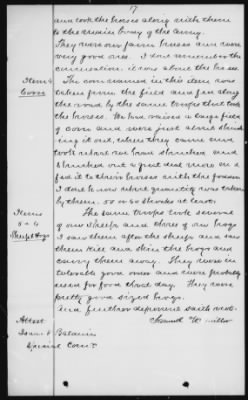 7
and took the horses along with them
to the main body of the army.
They were our farm horses and were
very good ones. I dont remember the
Item 4
Corn
The corn named in this item was
taken from the field and fen along
the road by the same troops that took
the horses. We had raised a large field
of corn and were just about shuck-
ing it out, when they came and
took what we had shucked and
shucked out a great deal more and
fed it to their horses with the fodder
I dont know what quantity was taken
by them. 50 or 60 shocks at least.
Items
5 - 6
Sheep & Hogs
The same troops took several
of our sheep and three of our hogs
I saw them after the sheep and saw
them kill and skin the hogs and
carry them away. They were in
tolerable good order and were probably
used for food that day. They were
pretty good sized hogs.
And further deponent saith not.
Attest
Samuel W. Miller
Isaac Baldwin
Special Com'r.